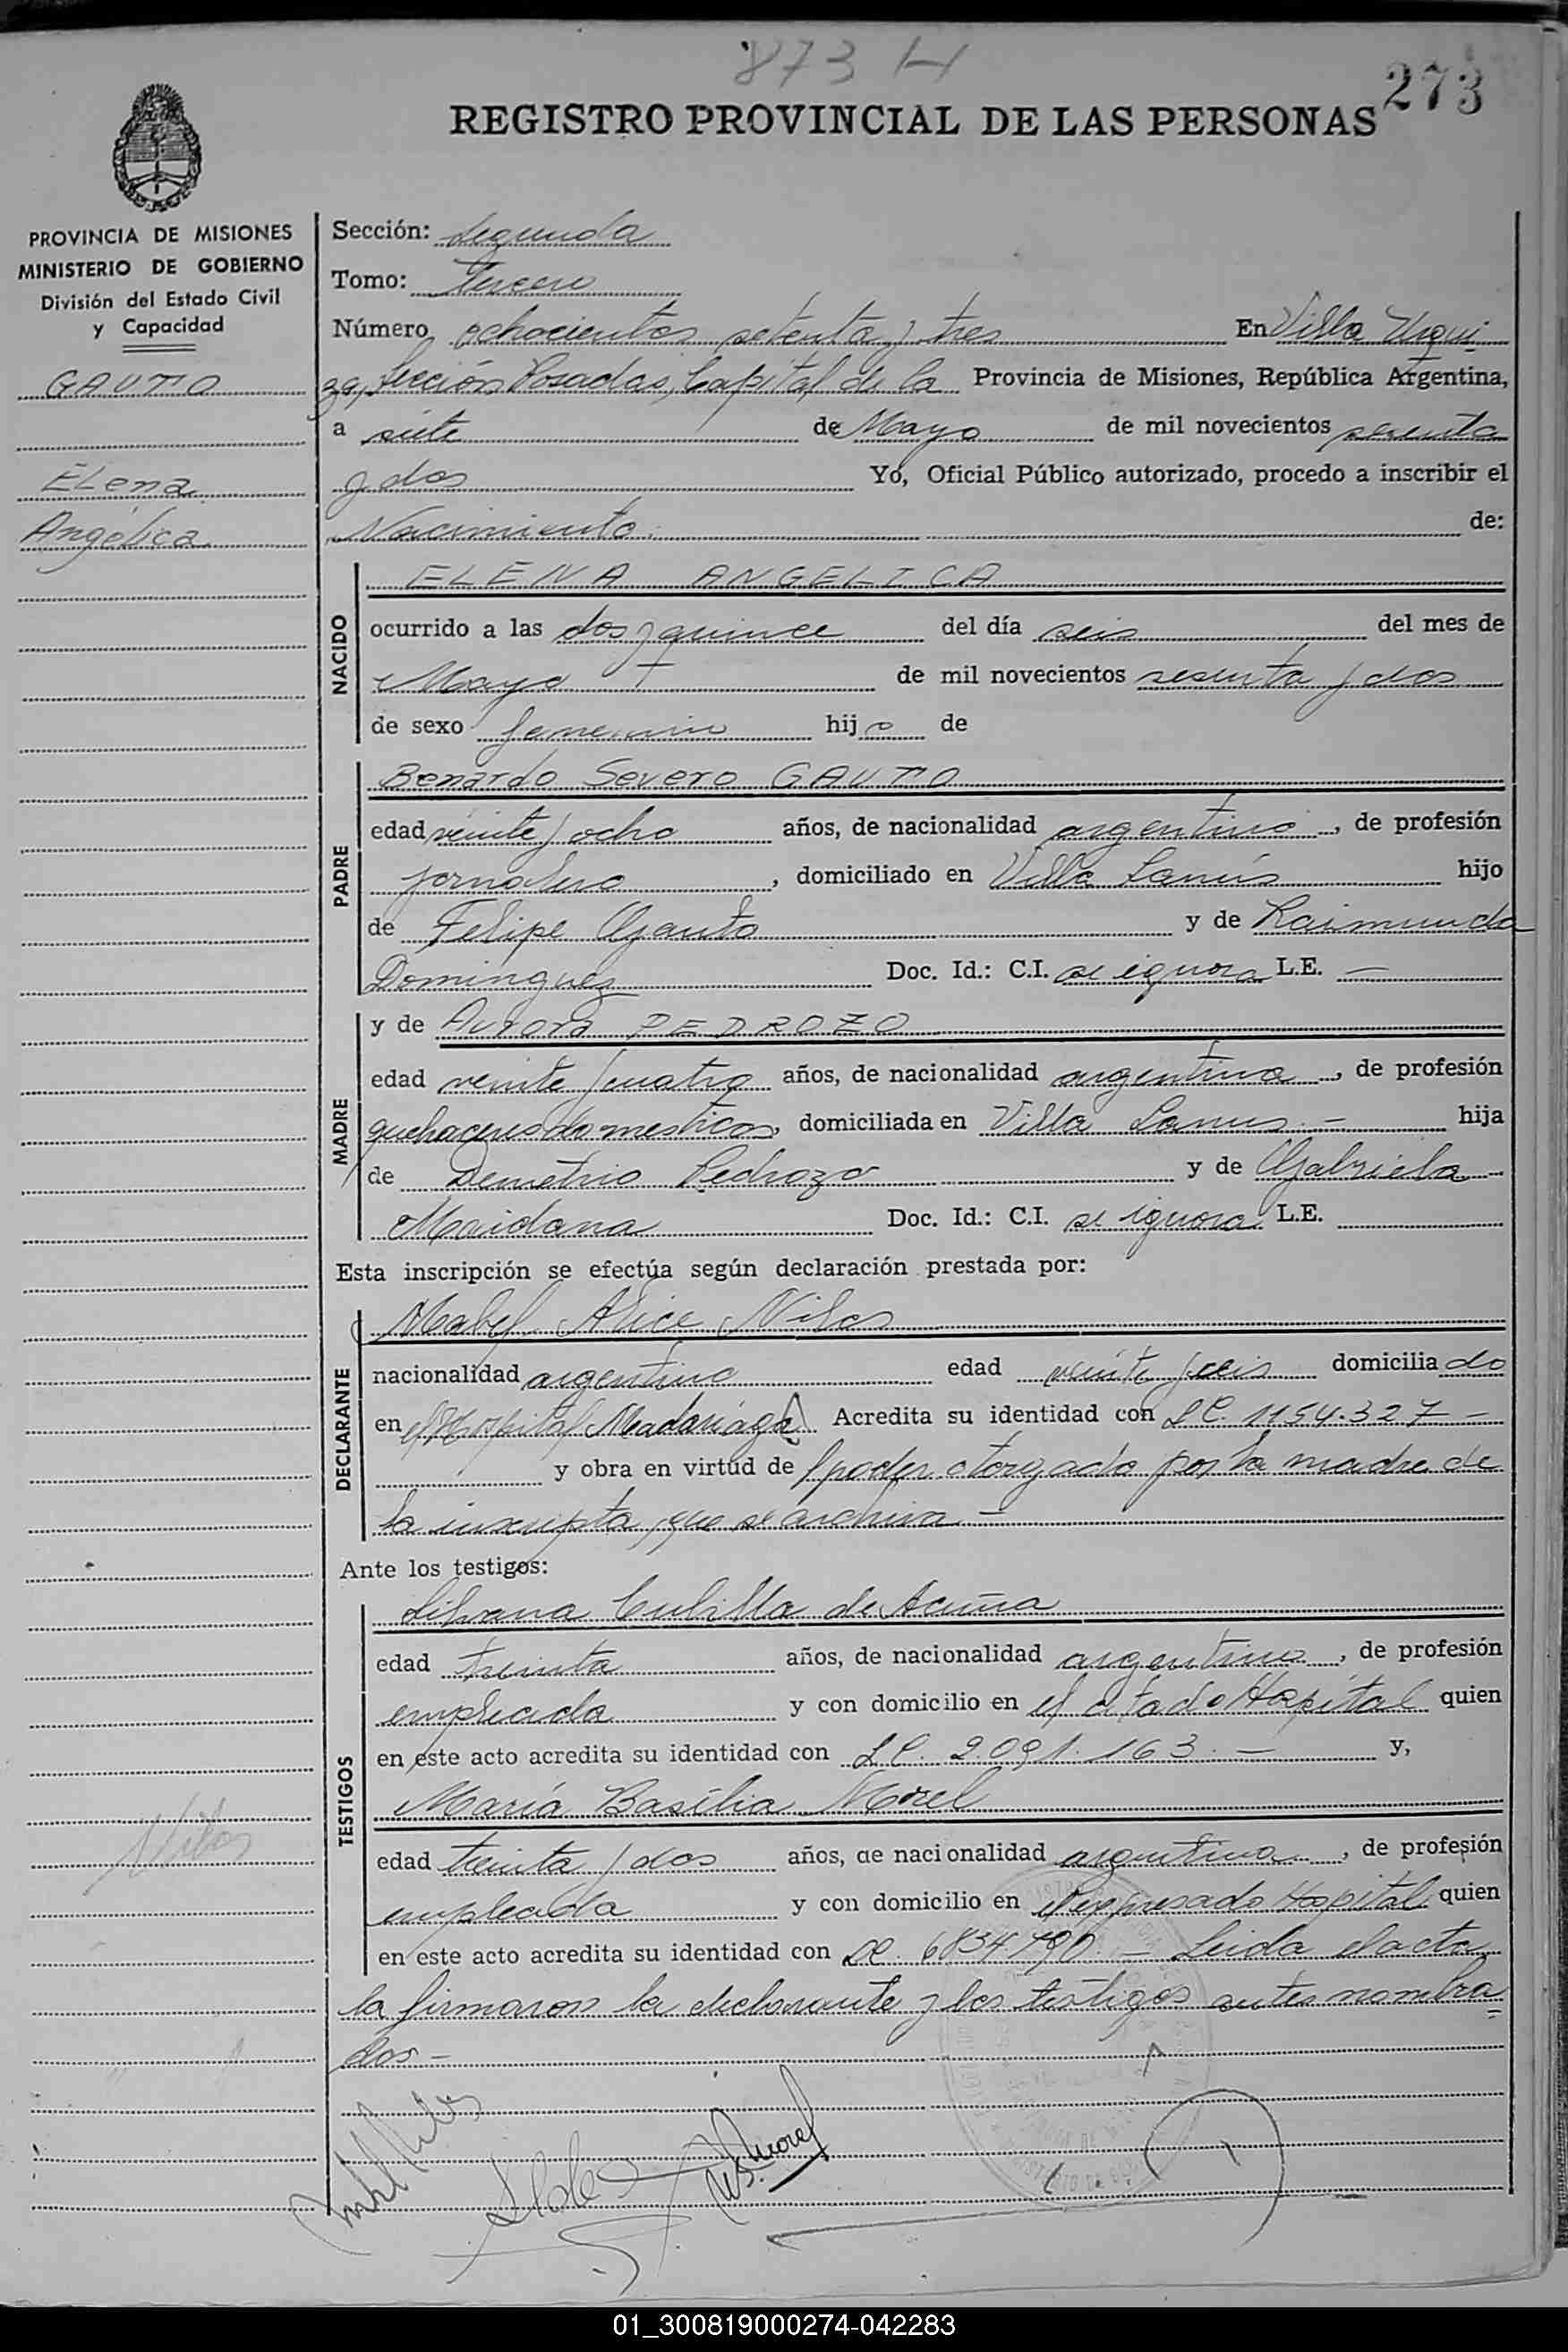 873 H
273
REGISTRO PROVINCIAL DE LAS PERSONAS
PROVINCIA DE MISIONES
MINISTERIO DE GOBIERNO
División del Estado Civil
y Capacidad
GAUTO
Elena
Angélica
Sección: Segunda
Tomo: Tercero
Número ochocientos setenta y tres En Villa Urqui
za, Sección Posadas, Capital de la Provincia de Misiones, República Argentina,
a siete de Mayo de mil novecientos sesenta
y dos Yo, Oficial Público autorizado, procedo a inscribir el
Nacimiento. de:
NACIDO
ELENA ANGELICA
ocurrido a las dos y quince del día seis del mes de
Mayo de mil novecientos sesenta y dos
de sexo femenino hija de
PADRE
Benardo Severo GAUTO
edad veinte y ocho años, de nacionalidad argentino, de profesión
jornalero, domiciliado en Villa Lanús hijo
de Felipe Gauto y de Raimunda
Dominguez Doc. Id.: C.I. se ignora L.E. —
MADRE
y de Aurora PEDROZO
edad veinte y cuatro años, de nacionalidad argentina, de profesión
quehaceres domesticos, domiciliada en Villa Lanus.- hija
de Demetrio Pedrozo y de Gabriela
Maidana Doc. Id.: C.I. se ignora L.E.
Esta inscripción se efectúa según declaración prestada por:
DECLARANTE
Mabel Alice Niles
nacionalidad argentina edad veinte y seis domiciliado
en el Hospital Madariaga Acredita su identidad con L.C. 1154.327 -
y obra en virtud de poder otorgado por la madre de
la inscripta, que se archiva -
Ante los testigos:
TESTIGOS
Silvana Cubilla de Acuña
edad treinta años, de nacionalidad argentina, de profesión
empleada y con domicilio en el citado Hospital quien
en este acto acredita su identidad con L.C. 2.091.163. — y,
María Basilia Morel
edad treinta y dos años, de nacionalidad argentina, de profesión
empleada y con domicilio en el expresado Hospital quien
en este acto acredita su identidad con LC. 6834790. — Leida el acta,
la firmaron la declarante y los testigos antes nombra
dos -
01_300819000274-042283